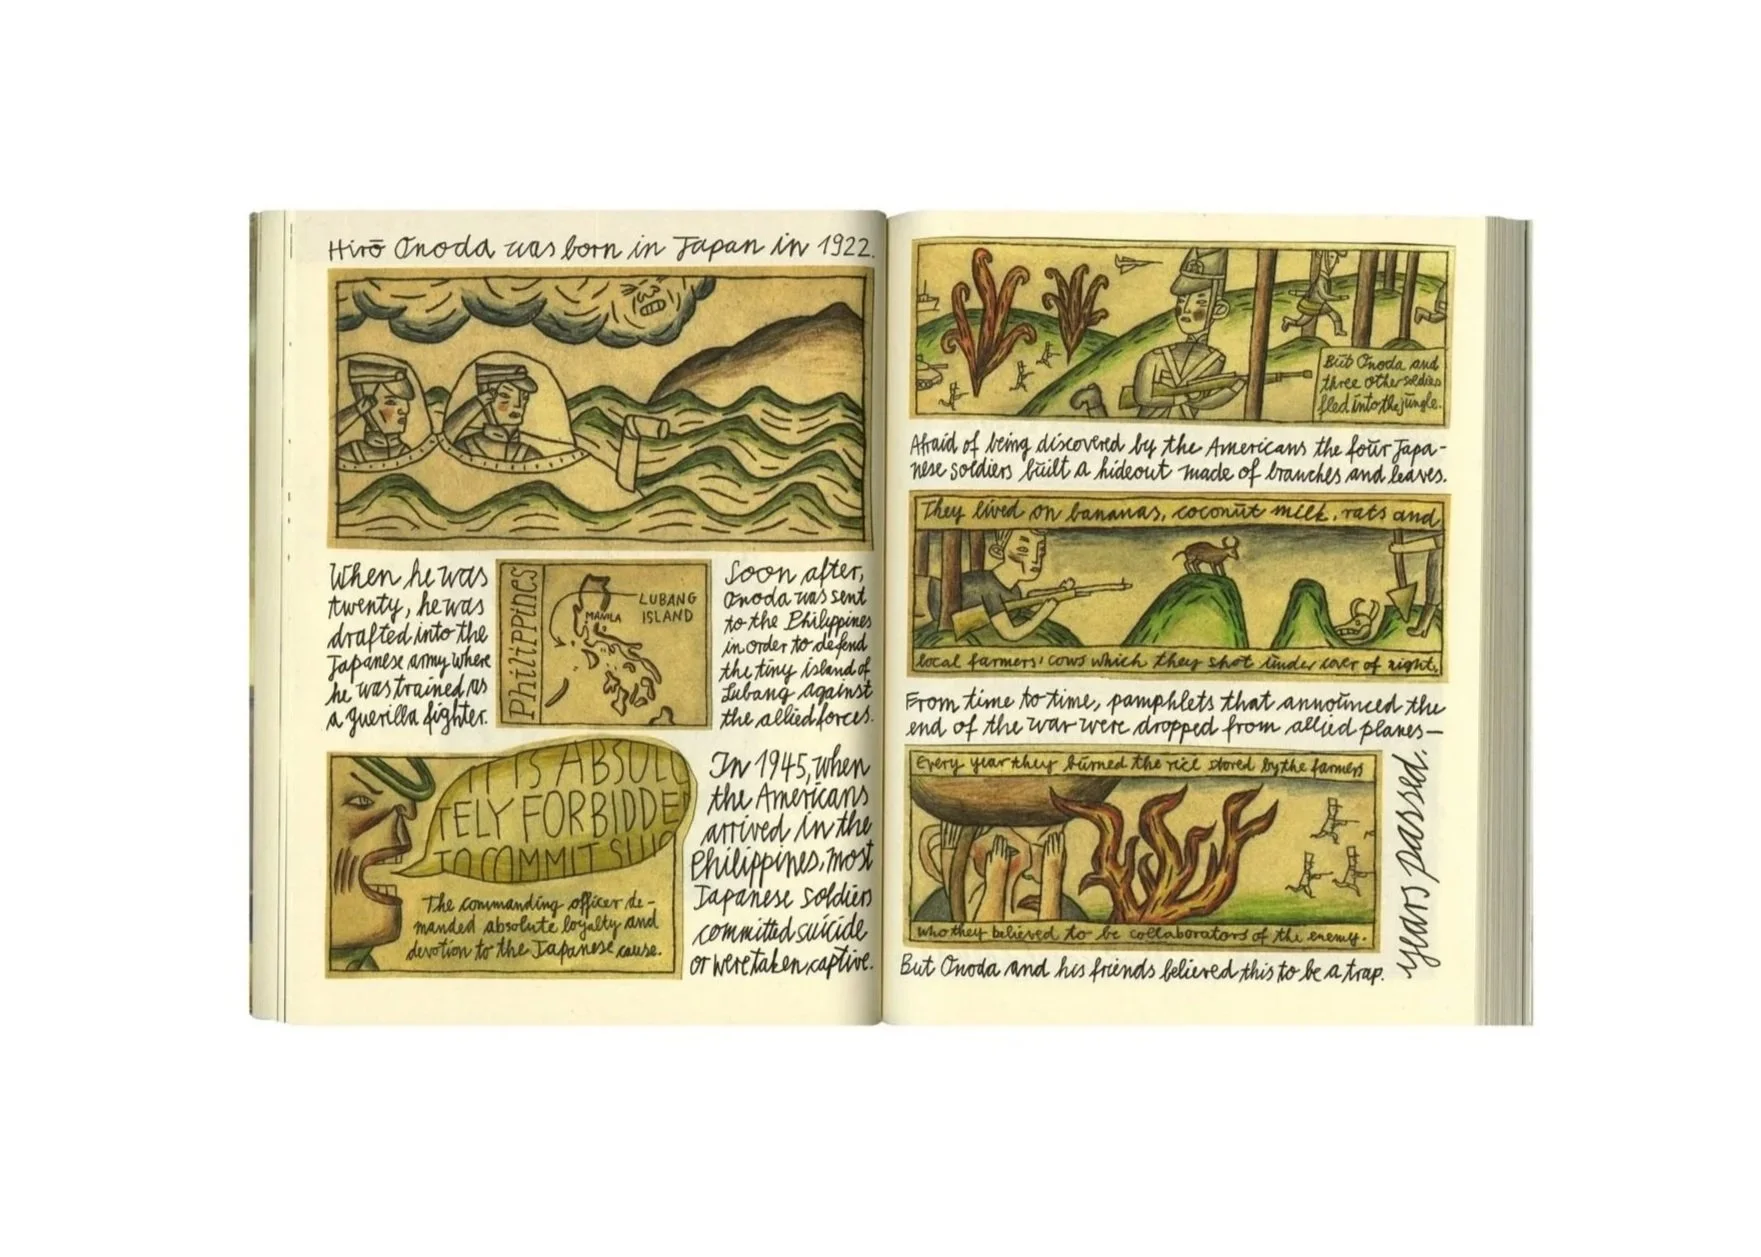 Hirō Onoda was born in Japan in 1922.
When he was
twenty, he was
drafted into the
Japanese army where
he was trained as
a guerilla fighter.
Philippines
MANILA
LUBANG
ISLAND
Soon after,
Onoda was sent
to the Philippines
in order to defend
the tiny island of
Lubang against
the allied forces.
IT IS ABSOLU
TELY FORBIDDE
TO COMMIT SUIC
The commanding officer de-
manded absolute loyalty and
devotion to the Japanese cause.
In 1945, when
the Americans
arrived in the
Philippines, most
Japanese soldiers
committed suicide
or were taken captive.
But Onoda and
three other soldiers
fled into the jungle.
Afraid of being discovered by the Americans the four Japa-
nese soldiers built a hideout made of branches and leaves.
They lived on bananas, coconut milk, rats and
local farmers' cows which they shot under cover of night.
From time to time, pamphlets that announced the
end of the war were dropped from allied planes—
Every year they burned the rice stored by the farmers
who they believed to be collaborators of the enemy.
But Onoda and his friends believed this to be a trap.
Years passed.